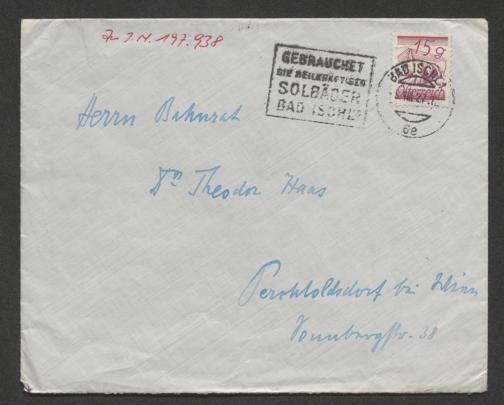 Zu I.N. 197.938
GEBRAUCHET
DIE HEILKRÄFTIGEN
SOLBÄDER
BAD ISCHL
15 g
BAD ISCHL
6e
Herrn Bahnrat
Dr Theodor Haas
Perchtoldsdorf bei Wien
Sonnbergstr. 38